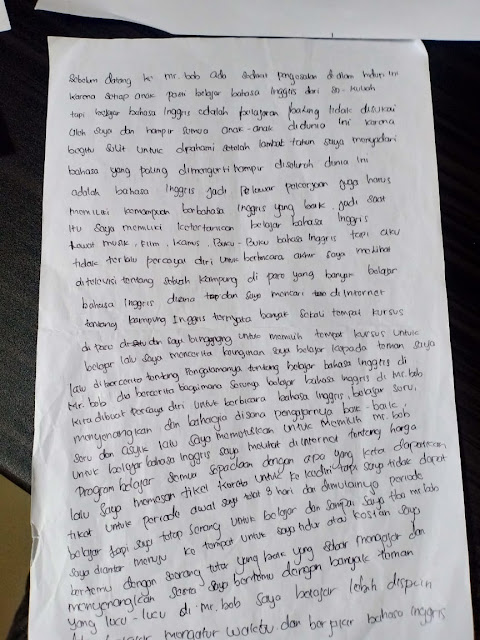 Sebelum datang ke mr. bob ada sedikit penyesalan di dalam hidup ini
karena setiap anak pasti belajar bahasa inggris dari SD - kuliah
tapi belajar bahasa inggris adalah pelajaran paling tidak disukai
oleh saya dan hampir semua anak-anak didunia ini karena
begitu sulit untuk dipahami setelah lambat tahun saya menyadari
bahasa yang paling dimengerti hampir diseluruh dunia ini
adalah bahasa inggris jadi pelamar pekerjaan juga harus
memiliki kemampuan berbahasa inggris yang baik, jadi saat
itu saya memiliki ketertarikan belajar bahasa inggris
lewat musik, film, kamus, Buku-Buku bahasa inggris tapi aku
tidak terlalu percaya diri untuk berbicara akhir saya melihat
ditelevisi tentang sebuah kampung di pare yang banyak belajar
bahasa inggris disana dan saya mencari di internet
tentang kampung inggris ternyata banyak sekali tempat kursus
di pare dan saya binggung untuk memilih tempat kursus untuk
belajar lalu saya mencerita keinginan saya belajar kepada teman saya
lalu di bercerita tentang pengalamanya tentang belajar bahasa inggris di
Mr. bob dia bercerita bagaimana serunya belajar bahasa inggris di Mr. bob
kita dibuat percaya diri untuk berbicara bahasa inggris, belajar seru,
menyenangkan dan bahagia disana pengajarnya baik-baik,
seru dan asyik lalu saya memutuskan untuk memilih mr. bob
untuk belajar bahasa inggris saya melihat di internet tentang harga
program belajar semua sepadan dengan apa yang kita dapatkan
lalu saya memesan tiket kereta untuk ke kediri tapi saya tidak dapat
tiket untuk periode awal saya telat 3 hari dan dimulainya periode
belajar tapi saya tetap senang untuk belajar dan sampai saya tiba mr. bob
saya diantar menuju ke tempat untuk saya tidur atau kostan saya
bertemu dengan seorang tutor yang baik yang sabar mengajar dan
menyenangkan serta saya bertemu dengan banyak teman
yang lucu-lucu di mr. bob saya belajar lebah disiplin
mengatur waktu dan berfikir bahasa inggris